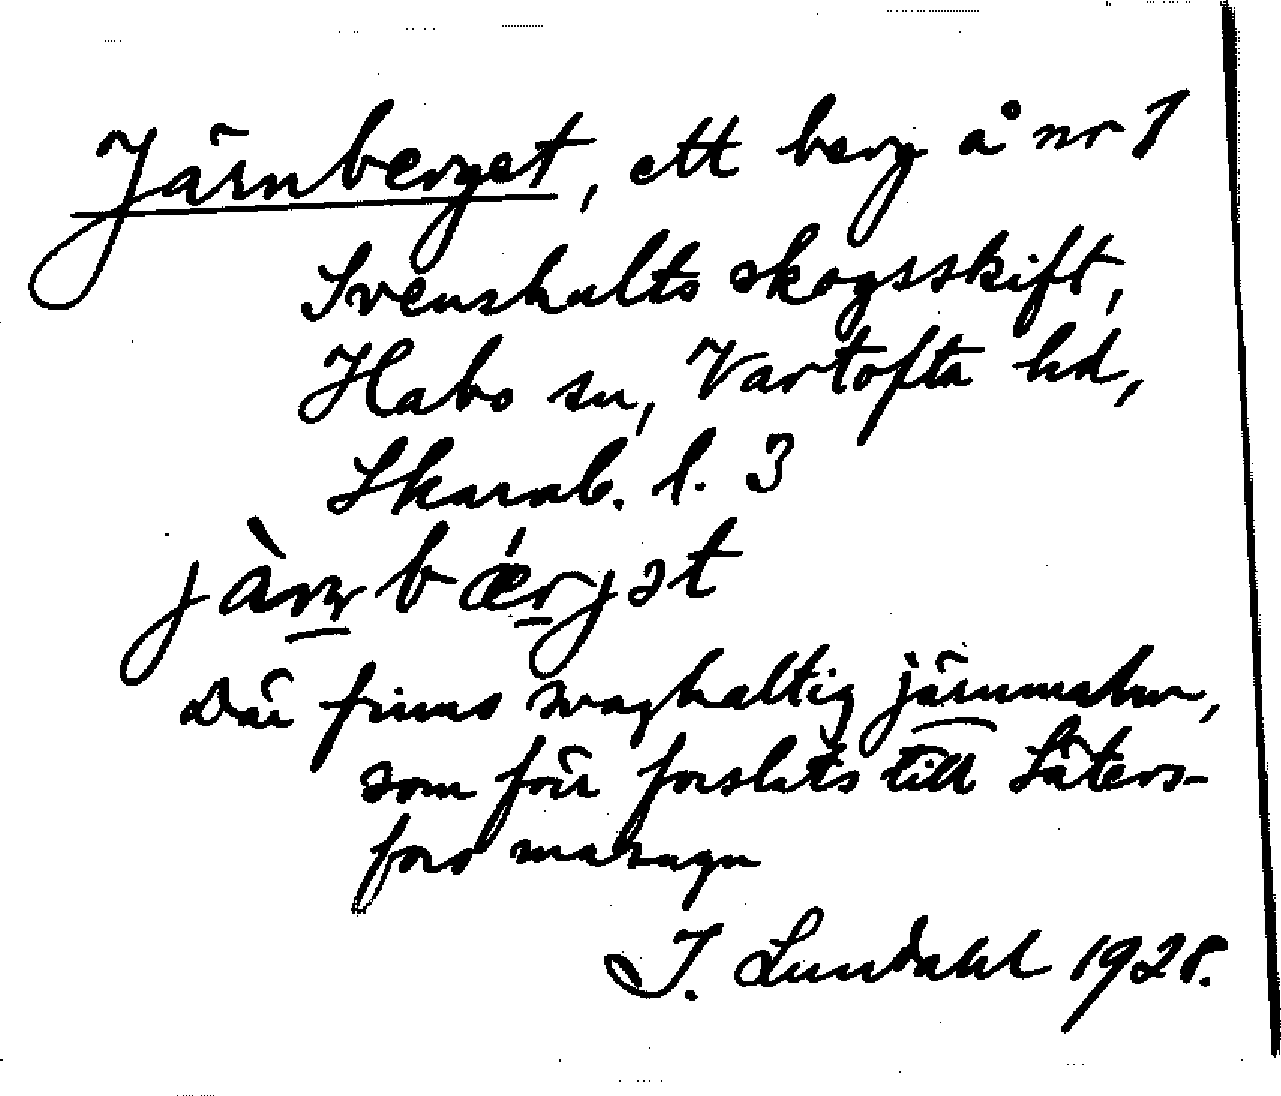 Järnberget, ett berg å nr 1
Svenshults skogsskift,
Habo sn, Vartofta hd,
Skarab. l. 3
jà̀rn bǽrjət
Där finns svaghaltig järnmalm,
som förr forslats till Säters-
fors masugn
I. Lundahl 1928.